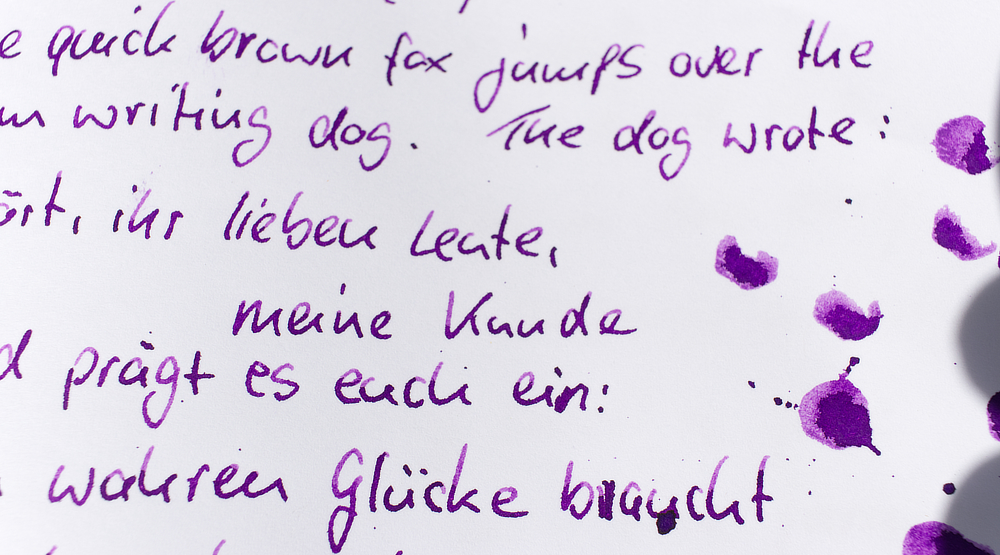 quick brown fox jumps over the
writing dog. The dog wrote:
ihr lieben Leute,
meine Kunde
prägt es euch ein:
wahren Glücke braucht